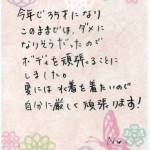 今年じ35才になり
このままじは、ダメに
なりそうだったので
ボディを頑張ることに
しました。
夏には水着を着たいので
自分に厳しく頑張ります!